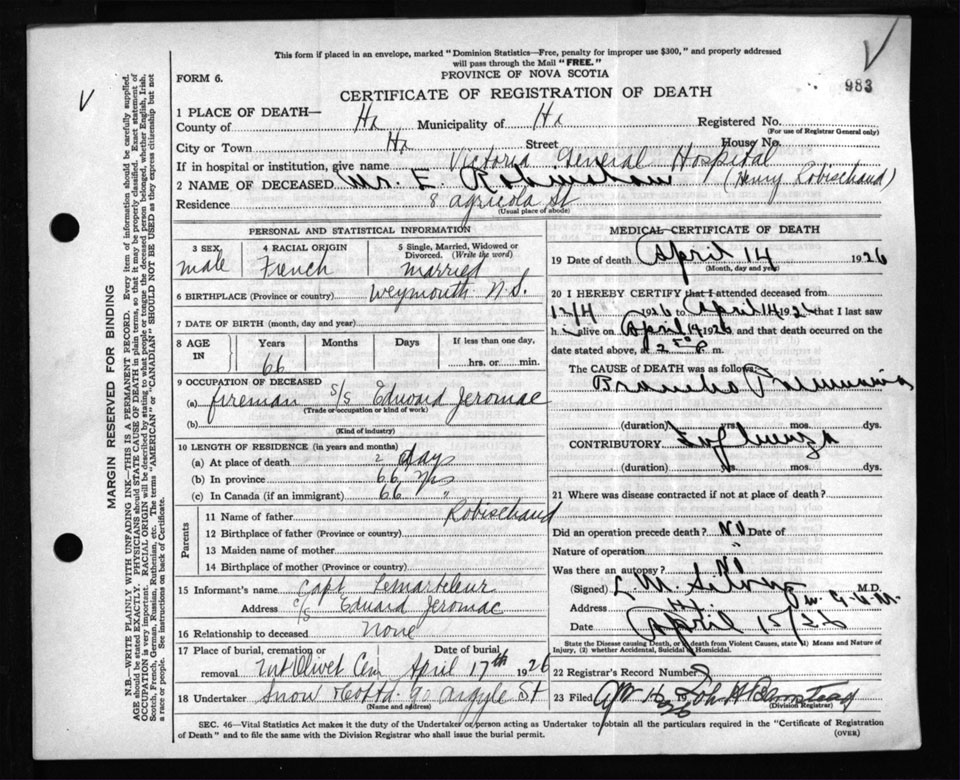 This form if placed in an envelope, marked "Dominion Statistics—Free, penalty for improper use $300," and properly addressed
will pass through the Mail "FREE."
FORM 6.
PROVINCE OF NOVA SCOTIA
983
CERTIFICATE OF REGISTRATION OF DEATH
1 PLACE OF DEATH—
County of Hx Municipality of Hx Registered No.
(For use of Registrar General only)
City or Town Hx Street House No.
If in hospital or institution, give name Victoria General Hospital
2 NAME OF DECEASED Mr. E. Robinshaw (Henry Robischaud)
Residence 8 Agricola St
(Usual place of abode)
PERSONAL AND STATISTICAL INFORMATION
3 SEX
male
4 RACIAL ORIGIN
French
5 Single, Married, Widowed or
Divorced. (Write the word)
married
6 BIRTHPLACE (Province or country) Weymouth N.S.
7 DATE OF BIRTH (month, day and year)
8 AGE
IN
Years Months Days If less than one day,
66 hrs. or min.
9 OCCUPATION OF DECEASED
(a) fireman S/S Edward Jeromac
(Trade or occupation or kind of work)
(b)
(Kind of industry)
10 LENGTH OF RESIDENCE (in years and months)
(a) At place of death 2 days
(b) In province 66 yrs
(c) In Canada (if an immigrant) 66 "
Parents
11 Name of father Robischaud
12 Birthplace of father (Province or country)
13 Maiden name of mother
14 Birthplace of mother (Province or country)
15 Informant's name Capt
Address Eduard Jeromac
16 Relationship to deceased None
17 Place of burial, cremation or Date of burial
removal Mt Olivet Cem April 17th 1926
18 Undertaker Snow 90 Argyle St
(Name and address)
MEDICAL CERTIFICATE OF DEATH
19 Date of death April 14 1926
(Month, day and year)
20 I HEREBY CERTIFY that I attended deceased from
12/4 1926 to April 14 1926 that I last saw
h i alive on April 14 1926 and that death occurred on
date stated above, at 2 P. m.
The CAUSE of DEATH was as follows:
Broncho Pneumonia
(duration) yrs. mos. dys.
CONTRIBUTORY Influenza
(duration) yrs. mos. dys.
21 Where was disease contracted if not at place of death?
Did an operation precede death? No Date of
Nature of operation "
Was there an autopsy? No
(Signed) L. M. M.D.
Address
Date April 15/26
State the Disease causing Death, or in death from Violent Causes, state (1) Means and Nature of
Injury, (2) whether Accidental, Suicidal or Homicidal.
22 Registrar's Record Number
23 Filed
(Division Registrar)
SEC. 46—Vital Statistics Act makes it the duty of the Undertaker or person acting as Undertaker to obtain all the particulars required in the "Certificate of Registration
of Death" and to file the same with the Division Registrar who shall issue the burial permit.
(OVER)
MARGIN RESERVED FOR BINDING
N.B.—WRITE PLAINLY WITH UNFADING INK—THIS IS A PERMANENT RECORD. Every item of information should be carefully supplied.
AGE should be stated EXACTLY. PHYSICIANS should STATE CAUSE OF DEATH in plain terms, so that it may be properly classified. Exact statement of
OCCUPATION is very important. RACIAL ORIGIN will be described by stating to what people or tongue the deceased person belonged, whether English, Irish,
Scotch, French, German, Russian, Ruthenian, etc. The terms "AMERICAN" or "CANADIAN" SHOULD NOT BE USED as they express citizenship but not
a race or people. See instructions on back of Certificate.